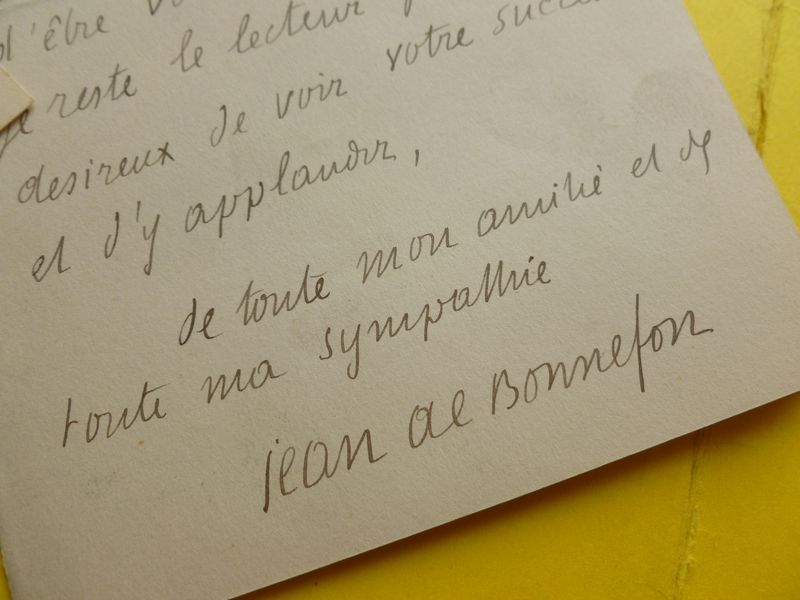 d'être
je reste le lecteur
desireux de voir votre succè
et d'y applaudir,
de toute mon amitié et de
toute ma sympathie
jean de Bonnefon